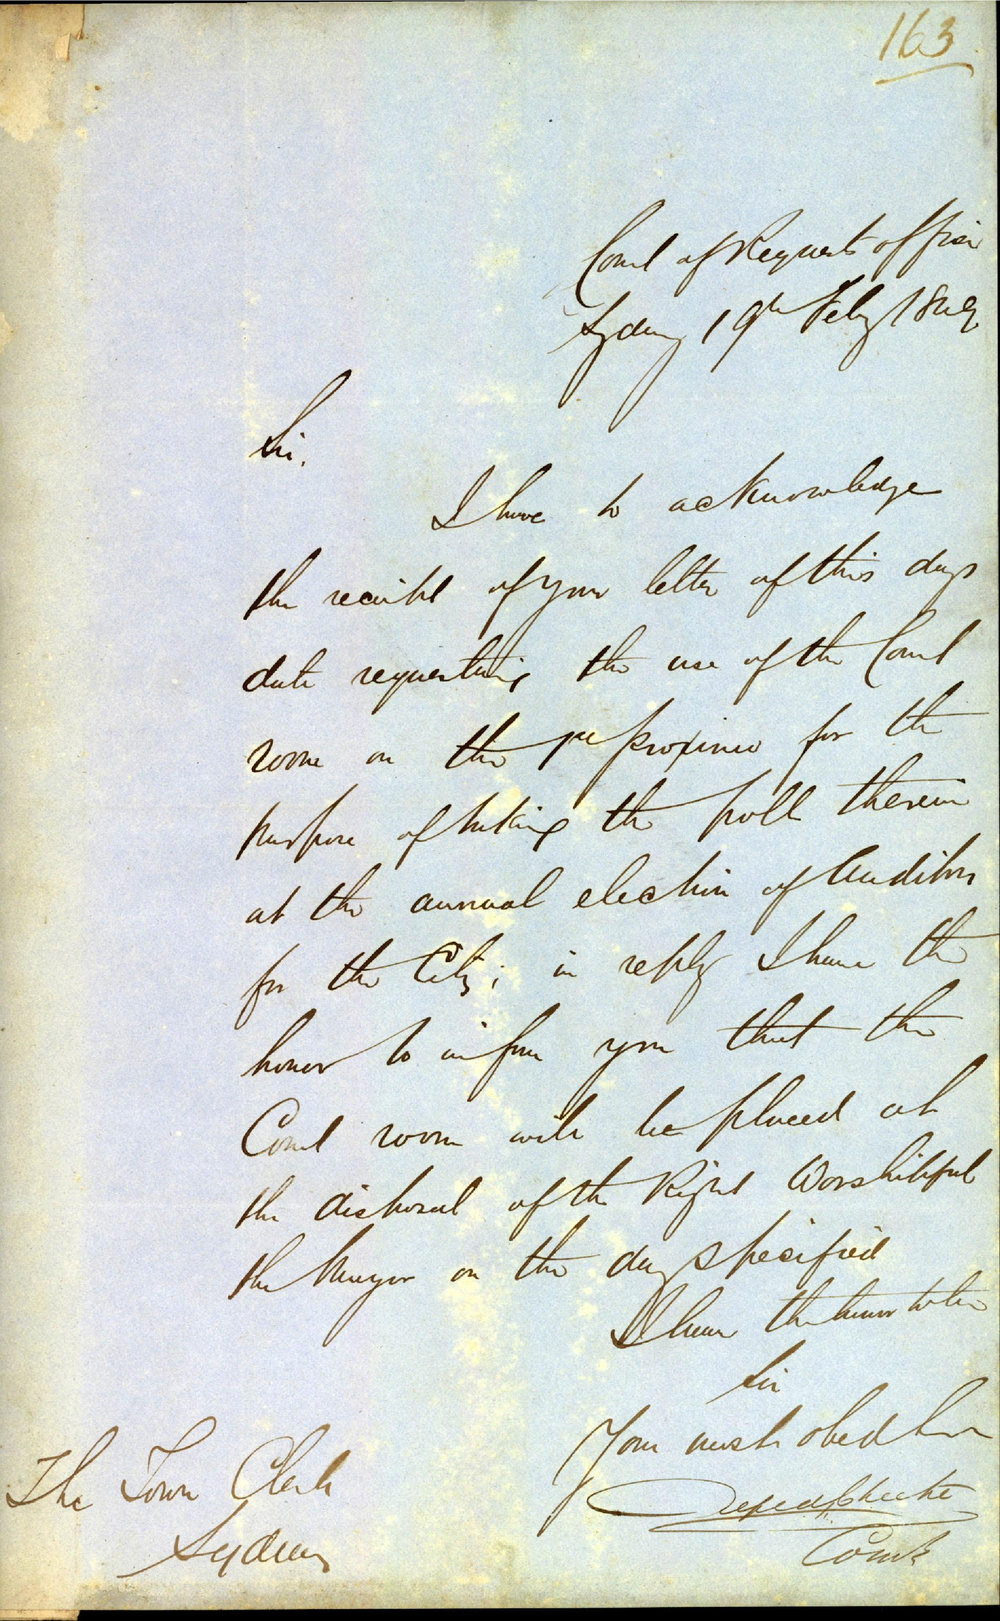 163
Court of Requests office
Sydney 19th Feby 1849
Sir.
I have to acknowledge
the receipt of your letter of this days
date requesting the use of the Court
room on the 1st proximo for the
purpose of taking the poll therein
at the annual election of Auditors
for the City; in reply I have the
honor to inform you that the
Court room will be placed at
the disposal of the Right Worshipful
the Mayor on the day specified
I have the honor to be
Sir
Your most obed
The Town Clerk
Sydney